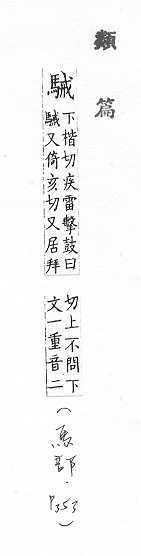 類篇
駴下楷切疾雷擊鼓曰
駴又倚亥切又居拜
切上不問下
文一重音二
(馬部.P353)